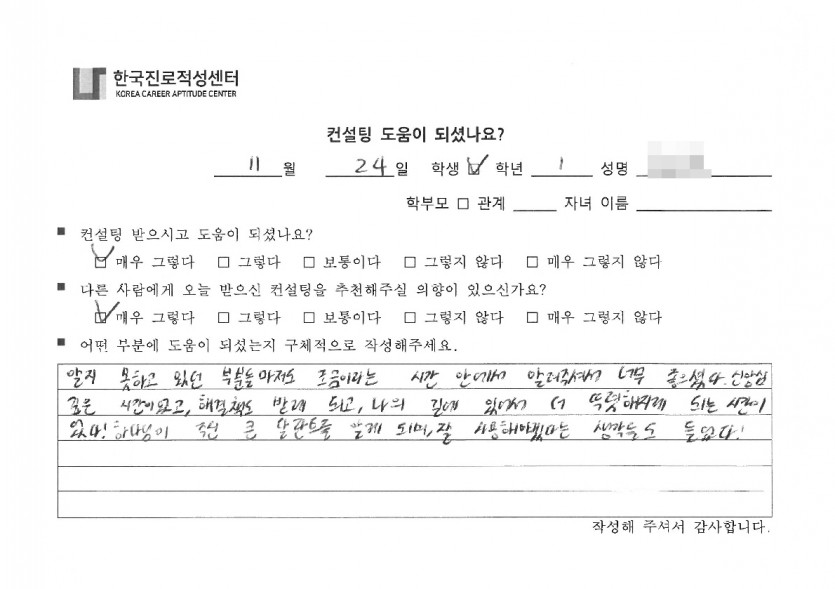 한국진로적성센터
KOREA CAREER APTITUDE CENTER
컨설팅 도움이 되셨나요?
11 월 24 일 학생 ☑ 학년 1 성명
학부모 □ 관계 자녀 이름
■ 컨설팅 받으시고 도움이 되셨나요?
☑ 매우 그렇다 □ 그렇다 □ 보통이다 □ 그렇지 않다 □ 매우 그렇지 않다
■ 다른 사람에게 오늘 받으신 컨설팅을 추천해주실 의향이 있으신가요?
☑ 매우 그렇다 □ 그렇다 □ 보통이다 □ 그렇지 않다 □ 매우 그렇지 않다
■ 어떤 부분에 도움이 되셨는지 구체적으로 작성해주세요.
알지 못하고 있던 부분들마저도 조금이라는 시간 안에서 알려주셔서 너무 좋으셨다. 신앙심
깊은 시간이었고, 해결책도 받게 되고, 나의 길에 있어서 더 뚜렷해지게 되는 시간이
었다! 하나님이 주신 큰 달란트를 알게 되며, 잘 사용해야겠다는 생각들도 들었다!
작성해 주셔서 감사합니다.